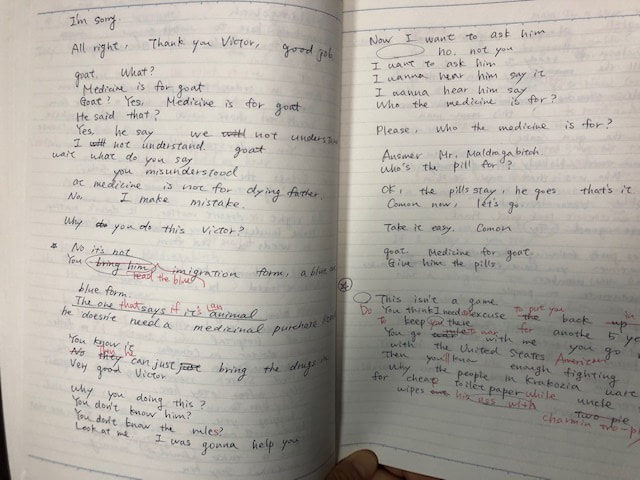 I'm sorry
All right, Thank you Victor, good job
goat. What?
Medicine is for goat
Goat? Yes, Medicine is for goat
He said that?
Yes, he say we will not understand
I will not understand. goat
wait what do you say
you misunderstood
medicine is not for dying father.
No, I make mistake.
Why do you do this Victor?
* No it's not
You bring him, imigration form, a blue
read the blue
blue form.
The one that says if it's an animal
he doesn't need a medicinal purchase
You know it
No they can just just bring the drugs
Very good Victor
Why you doing this?
You don't know him?
You don't know the rules?
Look at me I was gonna help you
Now I want to ask him
no. not you
I want to ask him
I wanna hear him say it
I wanna hear him say
Who the medicine is for?
Please, who the medicine is for?
Answer Mr. Maldragabitch.
Who's the pill for?
OK, the pills stay, he goes that's it
Comon now, let's go.
Take it easy. Comon
goat. Medicine for goat
Give him the pills.
This isn't a game.
Do You think I need excuse to put you the back up
to keep you there for anothe 5 ye
You go war to war with me you go
with the United States American
Then you'll know enough fighting
Why the people in Krakozia
for cheap toilet paper while uncle
wipes his ass with Two pie
charmin two-pl